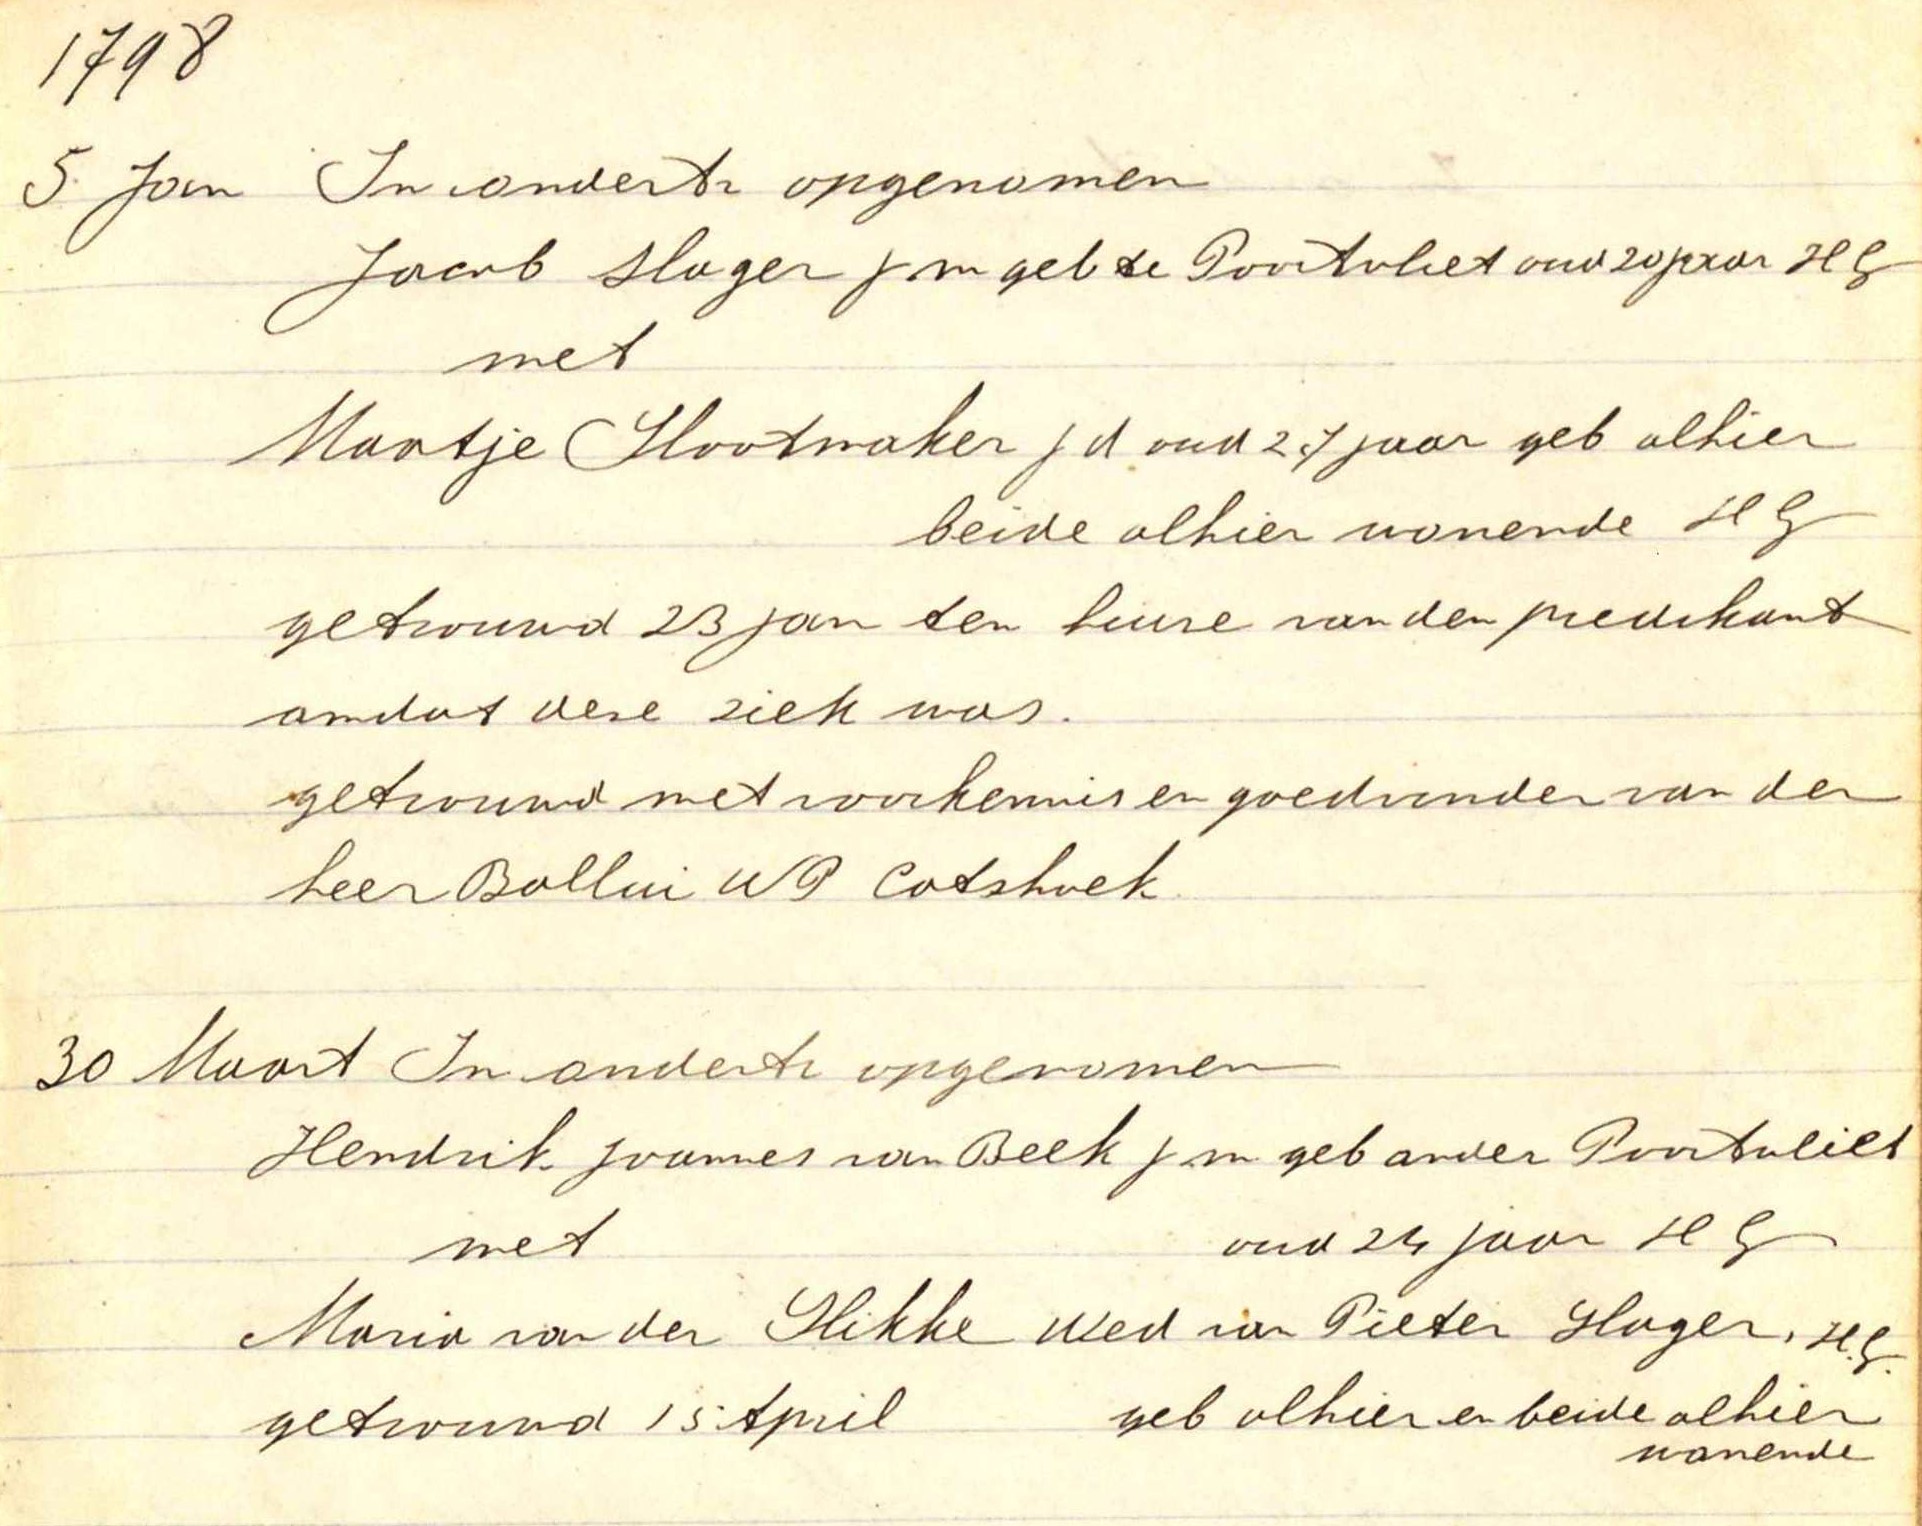 1798
5 Jan In ondertr opgenomen
Jacob Slager j m geb te Poortvliet oud 20 jaar H G
met
Maatje Slootmaker j d oud 27 jaar geb alhier
beide alhier wonende H G
getrouwd 23 jan ten huise van den predikant
omdat dese ziek was.
getrouwd met voorkennis en goedvinden van den
heer Ballui W P Catshoek
30 Maart In ondertr opgenomen
Hendrik Joannes van Beek j m geb onder Poortvliet
met oud 24 jaar H G
Maria van der Slikke Wed van Pieter Slager, H.G.
getrouwd 15 April geb alhier en beide alhier
wonende